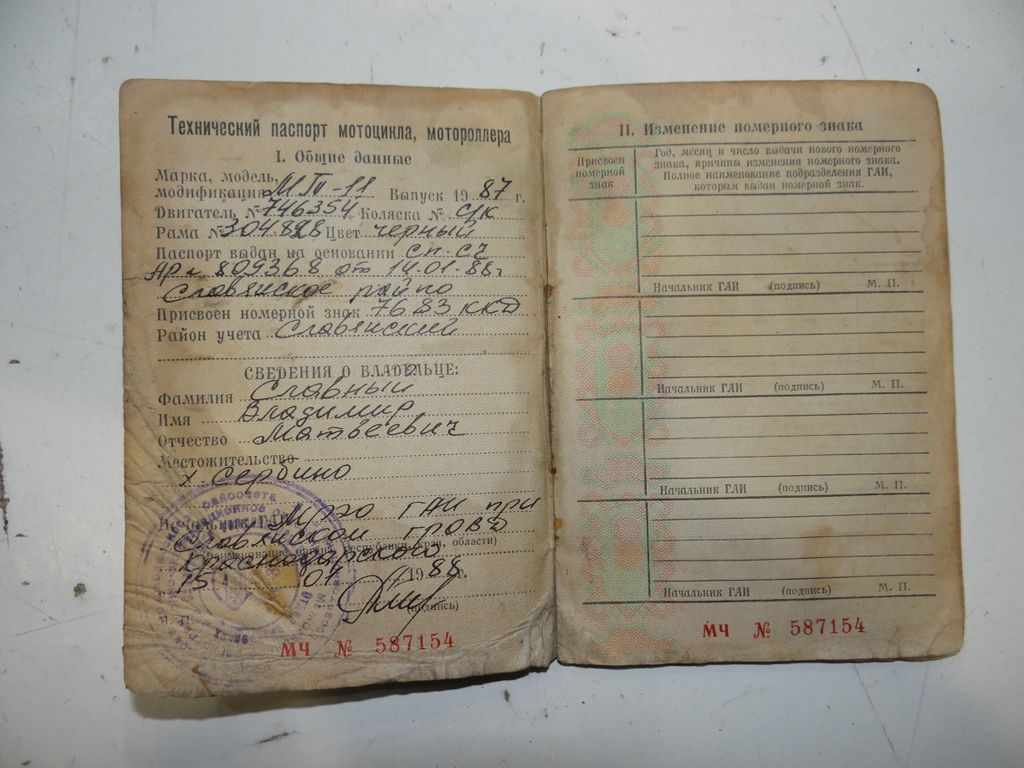 Технический паспорт мотоцикла, мотороллера
I. Общие данные
Марка, модель,
модификация МТ-11 Выпуск 1987 г.
Двигатель № 746354 Коляска №
Рама № 304828 Цвет черный
Паспорт выдан на основании сп-сч
809368 от 14.01-88г
Славянское райпо
Присвоен номерной знак 7683 ККД
Район учета Славянский
СВЕДЕНИЯ О ВЛАДЕЛЬЦЕ:
Фамилия Славный
Имя Владимир
Отчество Матвеевич
Местожительство
х. Сербино
Начальник ГАИ при
Славянском
(наименование органа, республики, края, области)
Краснодарского
15 01 1988 г.
(подпись)
М. П.
МЧ № 587154
II. Изменение номерного знака
Присвоен
номерной
знак
Год, месяц и число выдачи нового номерного
знака, причина изменения номерного знака.
Полное наименование подразделения ГАИ,
которым выдан номерной знак.
Начальник ГАИ (подпись) М. П.
Начальник ГАИ (подпись) М. П.
Начальник ГАИ (подпись) М. П.
Начальник ГАИ (подпись) М. П.
МЧ № 587154